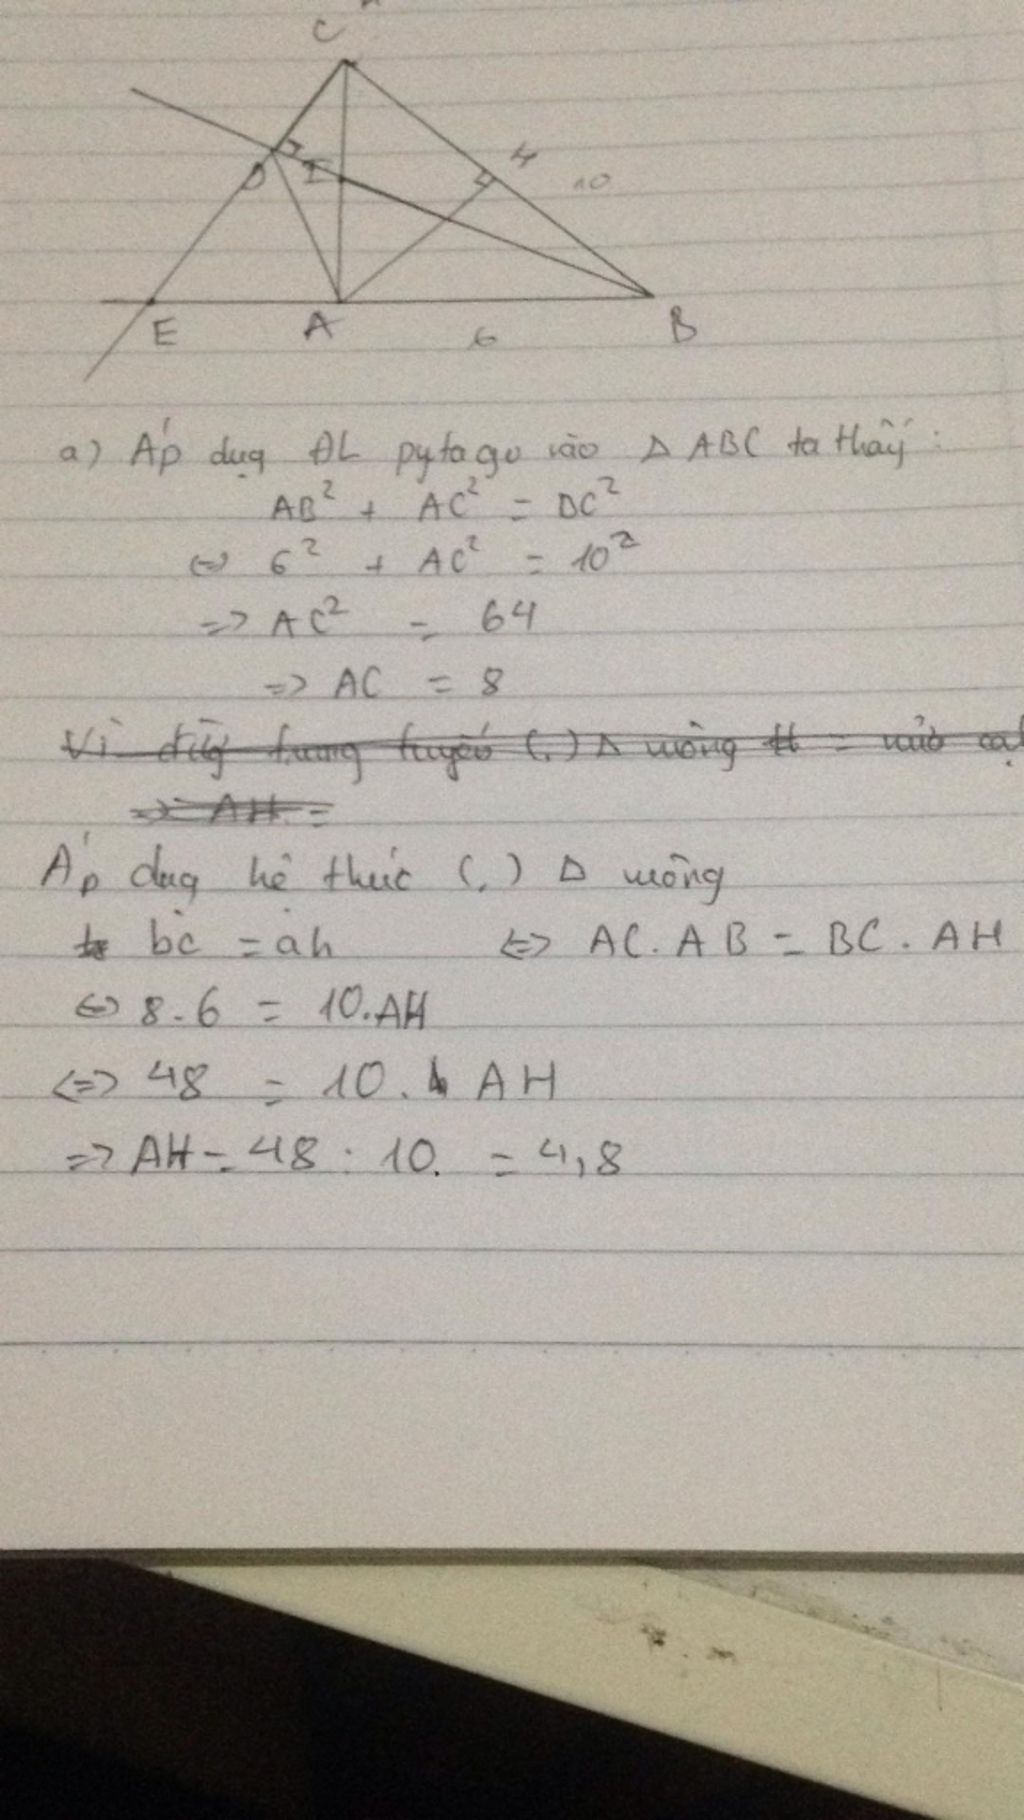 C
H
10
D
I
E
A
6
B
a) Áp dụg ĐL pytago vào Δ ABC ta thấy :
AB² + AC² = BC²
<=> 6² + AC² = 10²
=> AC² = 64
=> AC = 8
Vì đg trung tuyến (.) Δ vuông = nửa cạ
=> AH =
Áp dụg hệ thức (.) Δ vuông
bc = ah <=> AC. AB = BC . AH
<=> 8.6 = 10.AH
<=> 48 = 10. AH
=> AH = 48 : 10. = 4,8